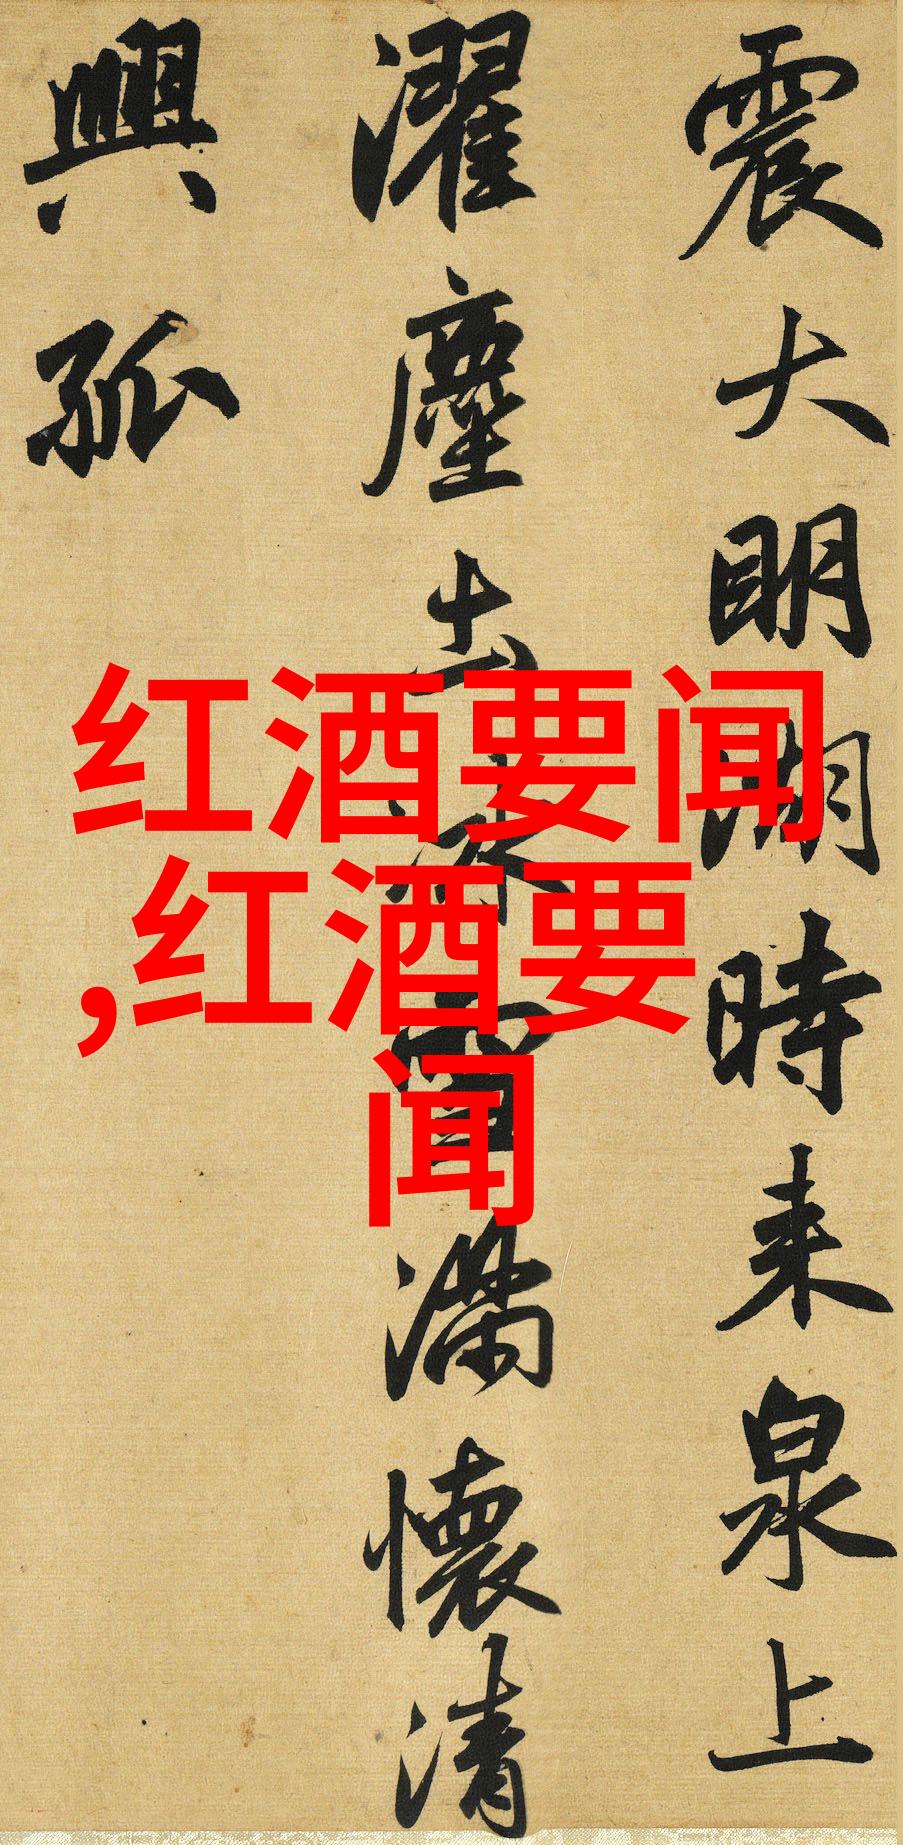 震大明湖時来泉上
濯塵土冰雪滿懷清
興孤
红酒要闻
,红酒要
闻